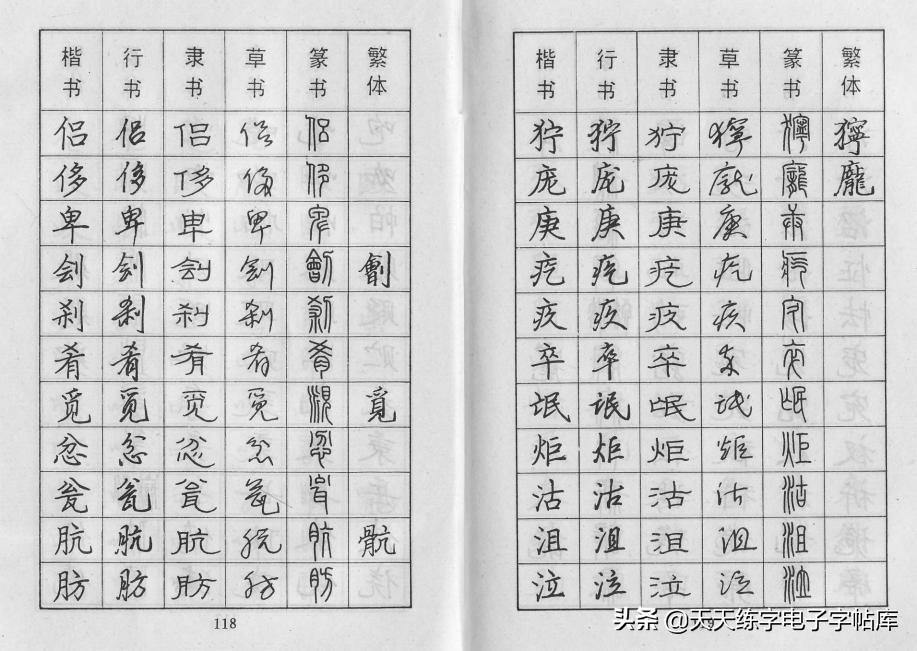 楷书 行书 隶书 草书 篆书 繁体
侣 侣 侣 侣 侣
侈 侈 侈 侈 侈
卑 卑 卑 卑 卑
刽 刽 刽 刽 劊 劊
刹 刹 刹 刹 刹
肴 肴 肴 肴 肴
觅 觅 觅 觅 覓
忿 忿 忿 忿 忿
瓮 瓮 瓮 瓮
肮 肮 肮 肮 肮 骯
肪 肪 肪 肪 肪
118
楷书 行书 隶书 草书 篆书 繁体
狞 狞 狞 獰 獰 獰
庞 庞 庞 龐 龐 龐
庚 庚 庚 庚 庚
疙 疙 疙 疙 疙
疫 疫 疫 疫 疫
卒 卒 卒 卒 卒
氓 氓 氓 氓 氓
炬 炬 炬 炬 炬
沽 沽 沽 沽 沽
沮 沮 沮 沮 沮
泣 泣 泣 泣 泣
头条 @天天练字电子字帖库